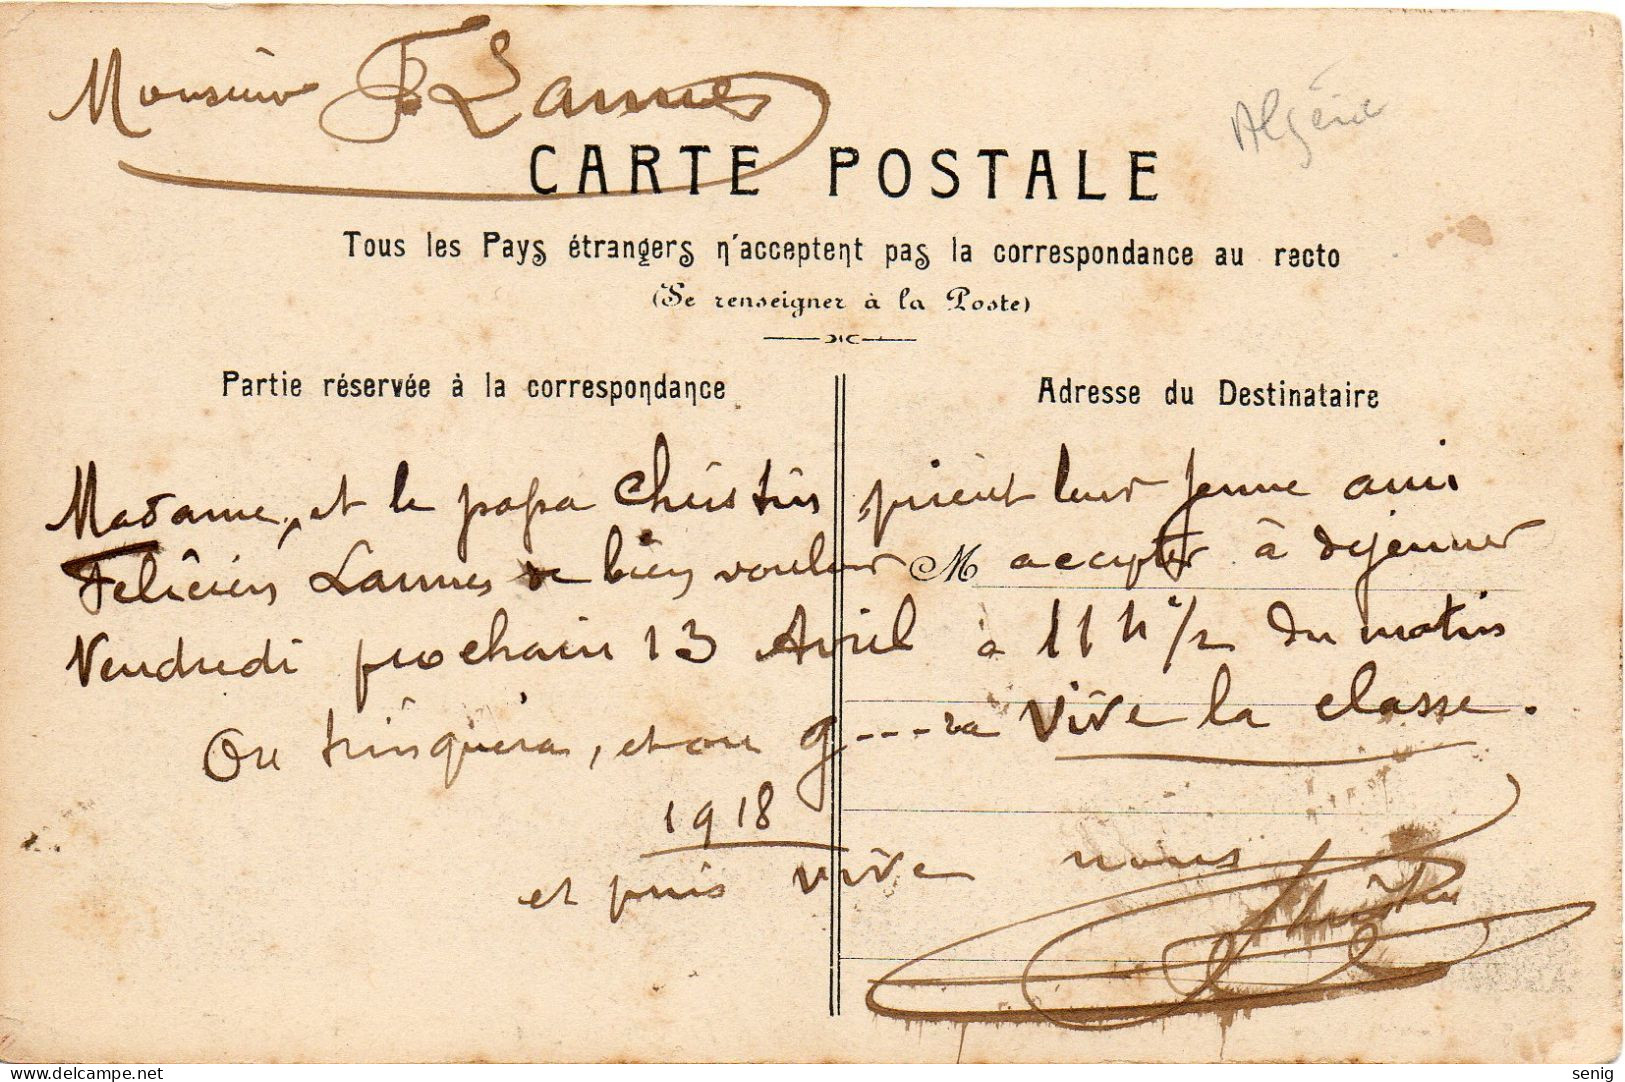 Monsieur F. Lannes
Algérie
CARTE POSTALE
Tous les Pays étrangers n'acceptent pas la correspondance au recto
(Se renseigner à la Poste)
Partie réservée à la correspondance
Adresse du Destinataire
Madame, et le papa Christin prient leur jeune ami
Felicien Lannes de bien vouloir M accepter à dejeuner
Vendredi prochain 13 Avril à 11 h 1/2 du matin
On trinquera, et on g---ra Vive la classe.
1918
et puis vive nous
Christin
delcampe.net
senig